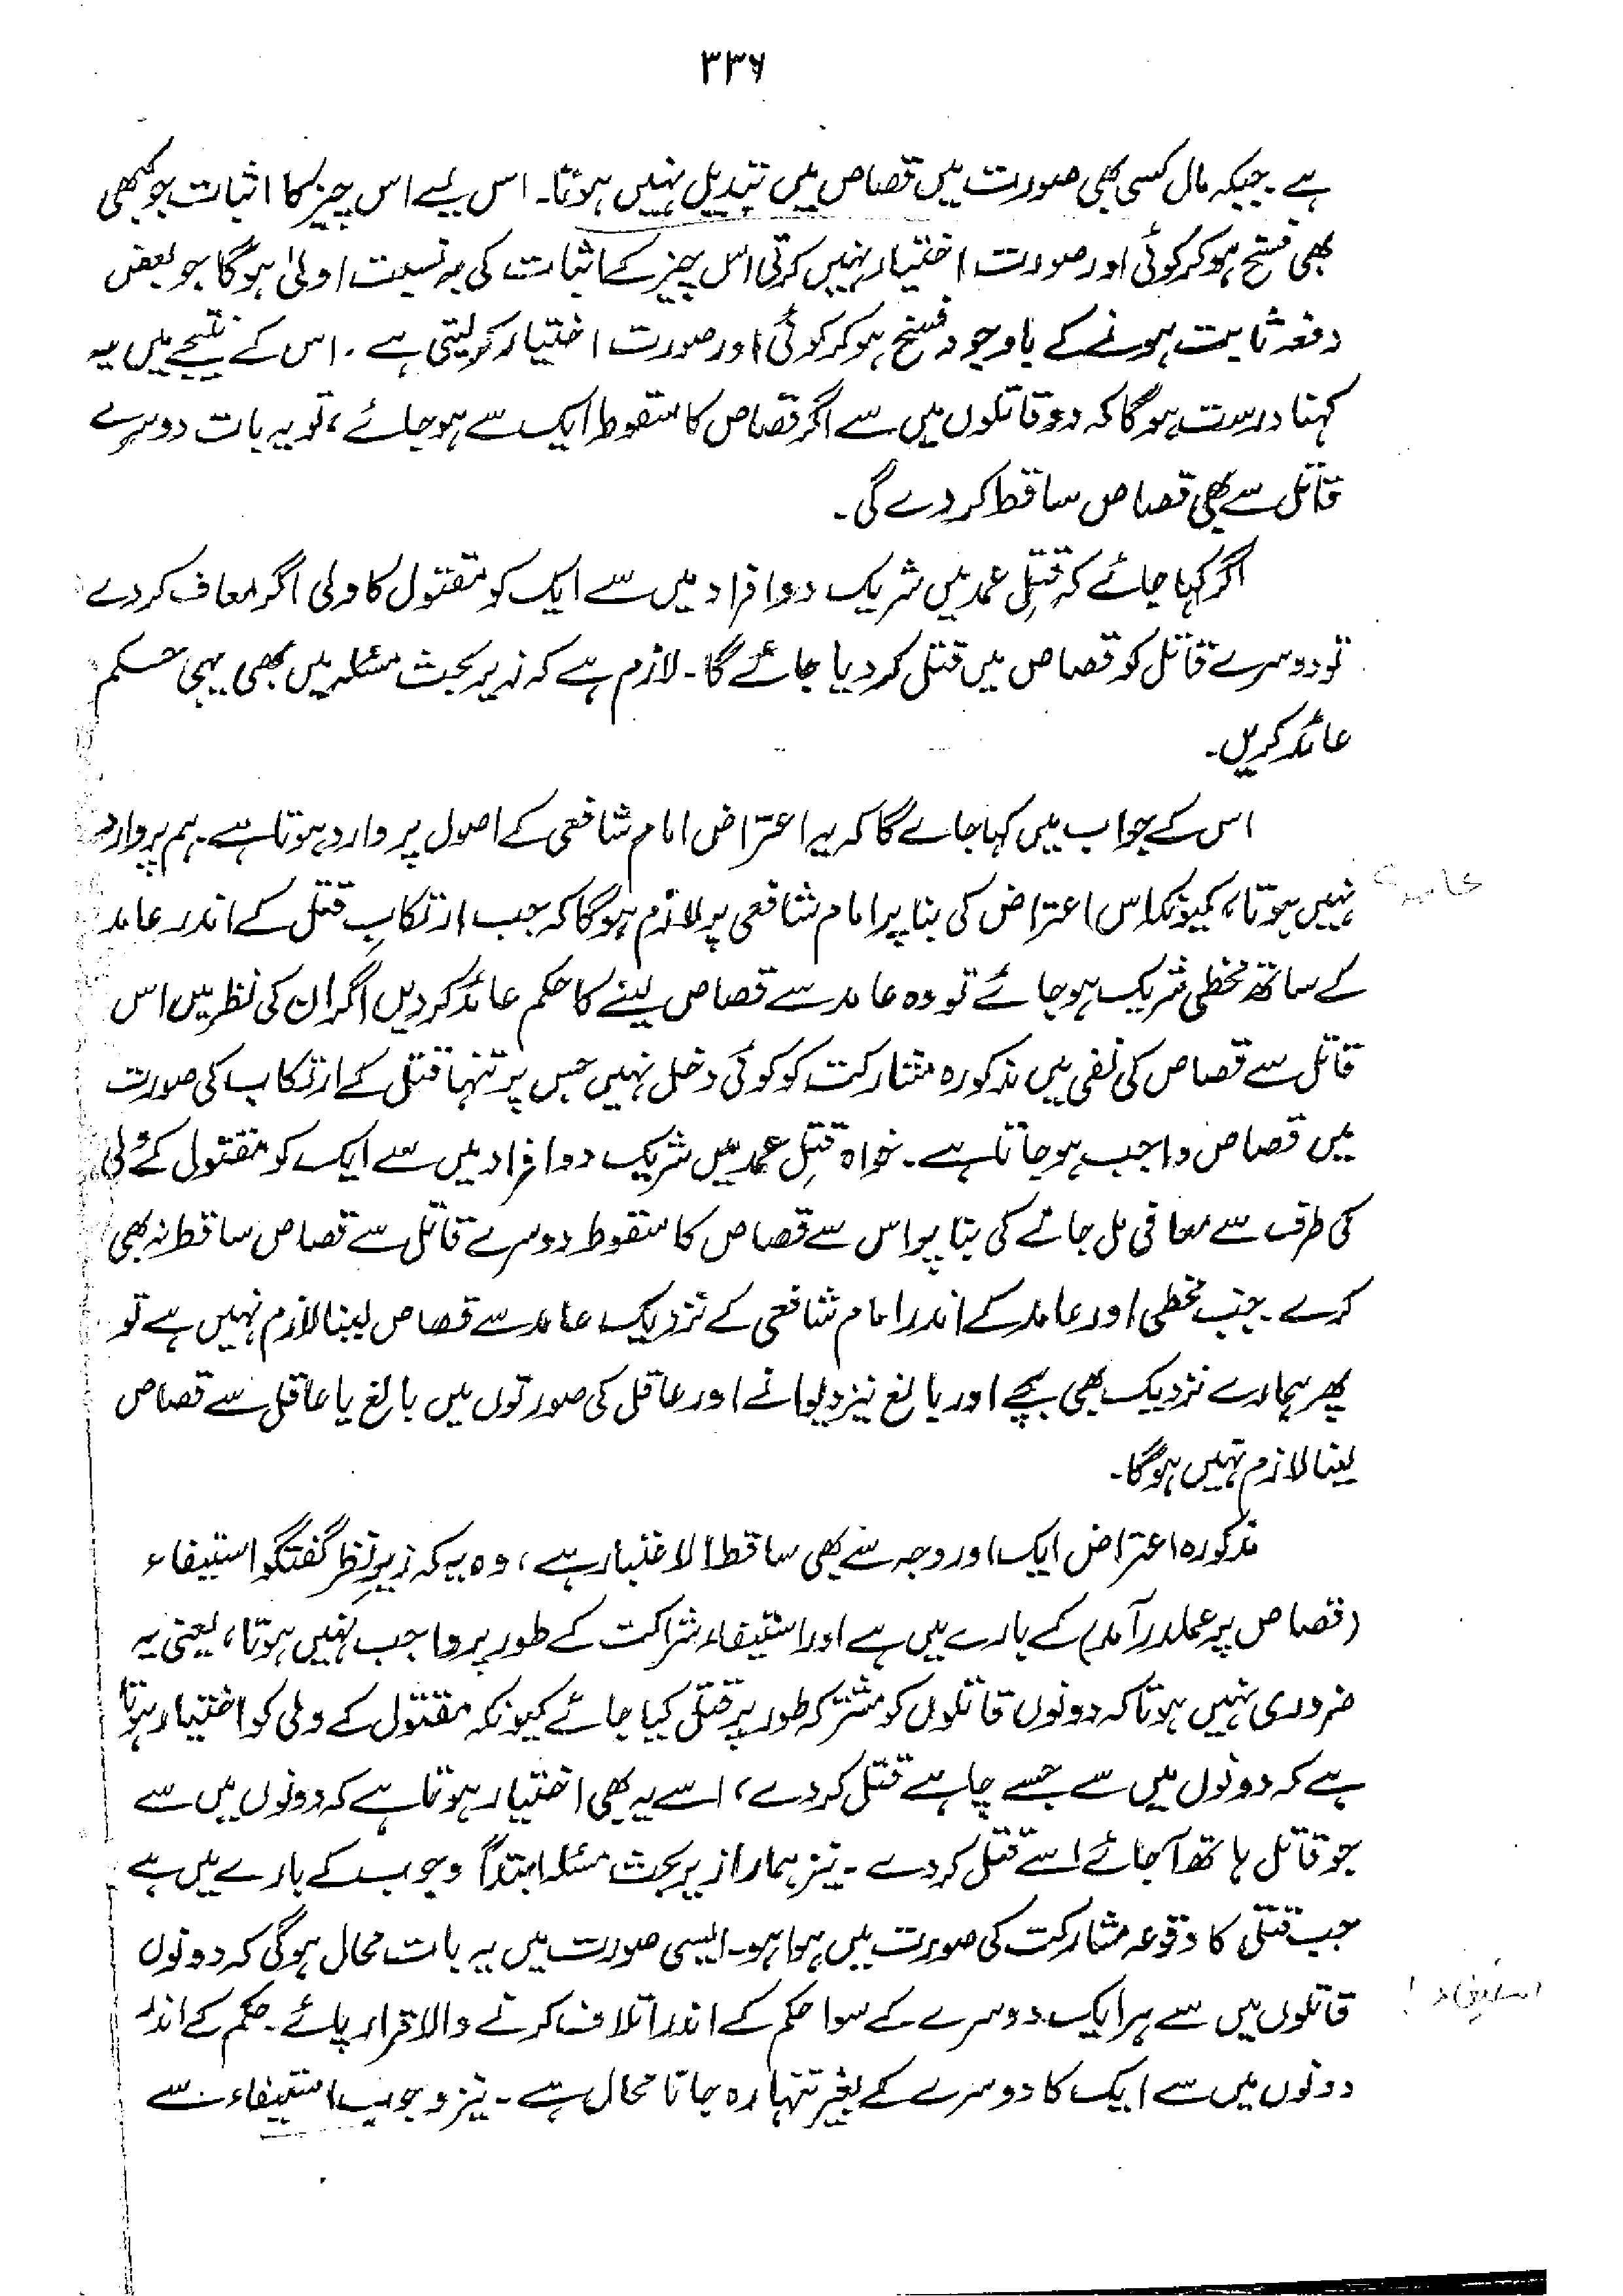 ۳۳۶
ہے۔ جبکہ مال کسی بھی صورت میں قصاص میں تبدیل نہیں ہوتا۔ اس لیے اس چیز کا اثبات جو کبھی
بھی فسخ ہو کر کوئی اور صورت اختیار نہیں کرتی اس چیز کے اثبات کی بہ نسبت اولیٰ ہوگا جو بعض
دفعہ ثابت ہونے کے باوجود فسخ ہو کر کوئی اور صورت اختیار کر لیتی ہے۔ اس کے نتیجے میں یہ
کہنا درست ہوگا کہ دو قاتلوں میں سے اگر قصاص کا سقوط ایک سے ہو جائے، تو یہ بات دوسرے
قاتل سے بھی قصاص ساقط کر دے گی۔
اگر کہا جائے کہ قتلِ عمد میں شریک دو افراد میں سے ایک کو مقتول کا ولی اگر معاف کر دے
تو دوسرے قاتل کو قصاص میں قتل کر دیا جائے گا۔ لازم ہے کہ زیر بحث مسئلہ میں بھی یہی حکم
عائد کریں۔
اس کے جواب میں کہا جائے گا کہ یہ اعتراض امام شافعی کے اصول پر وارد ہوتا ہے۔ ہم پر وارد
نہیں ہوتا، کیونکہ اس اعتراض کی بنا پر امام شافعی پر لازم ہوگا کہ جب ارتکابِ قتل کے اندر عامد
کے ساتھ مخطی شریک ہو جائے تو وہ عامد سے قصاص لینے کا حکم عائد کر دیں اگر ان کی نظر میں اس
قاتل سے قصاص کی نفی میں مذکورہ مشارکت کو کوئی دخل نہیں جس پر تنہا قتل کے ارتکاب کی صورت
میں قصاص واجب ہو جاتا ہے۔ خواہ قتلِ عمد میں شریک دو افراد میں سے ایک کو مقتول کے ولی
کی طرف سے معافی مل جانے کی بنا پر اس سے قصاص کا سقوط دوسرے قاتل سے قصاص ساقط نہ بھی
کرے۔ جب مخطی اور عامد کے اندر امام شافعی کے نزدیک عامد سے قصاص لینا لازم نہیں ہے تو
پھر ہمارے نزدیک بھی بچے اور بالغ نیز دیوانے اور عاقل کی صورتوں میں بالغ یا عاقل سے قصاص
لینا لازم نہیں ہوگا۔
مذکورہ اعتراض ایک اور وجہ سے بھی ساقط الاعتبار ہے، وہ یہ کہ زیرِ نظر گفتگو استیفاء
(قصاص پر عملدرآمد) کے بارے میں ہے اور استیفاء شراکت کے طور پر واجب نہیں ہوتا، یعنی یہ
ضروری نہیں ہوتا کہ دونوں قاتلوں کو مشترکہ طور پر قتل کیا جائے کیونکہ مقتول کے ولی کو اختیار ہوتا
ہے کہ دونوں میں سے جسے چاہے قتل کر دے، اسے یہ بھی اختیار ہوتا ہے کہ دونوں میں سے
جو قاتل ہاتھ آ جائے اسے قتل کر دے۔ نیز ہمارا زیر بحث مسئلہ ابتداً وجوب کے بارے میں ہے
جب قتل کا وقوعہ مشارکت کی صورت میں ہوا ہو۔ ایسی صورت میں یہ بات محال ہوگی کہ دونوں
قاتلوں میں سے ہر ایک دوسرے کے سوا حکم کے اندر اتلاف کرنے والا قرار پائے۔ حکم کے اندر
دونوں میں سے ایک کا دوسرے کے بغیر تنہا رہ جانا محال ہے۔ نیز وجوب استیفاء سے